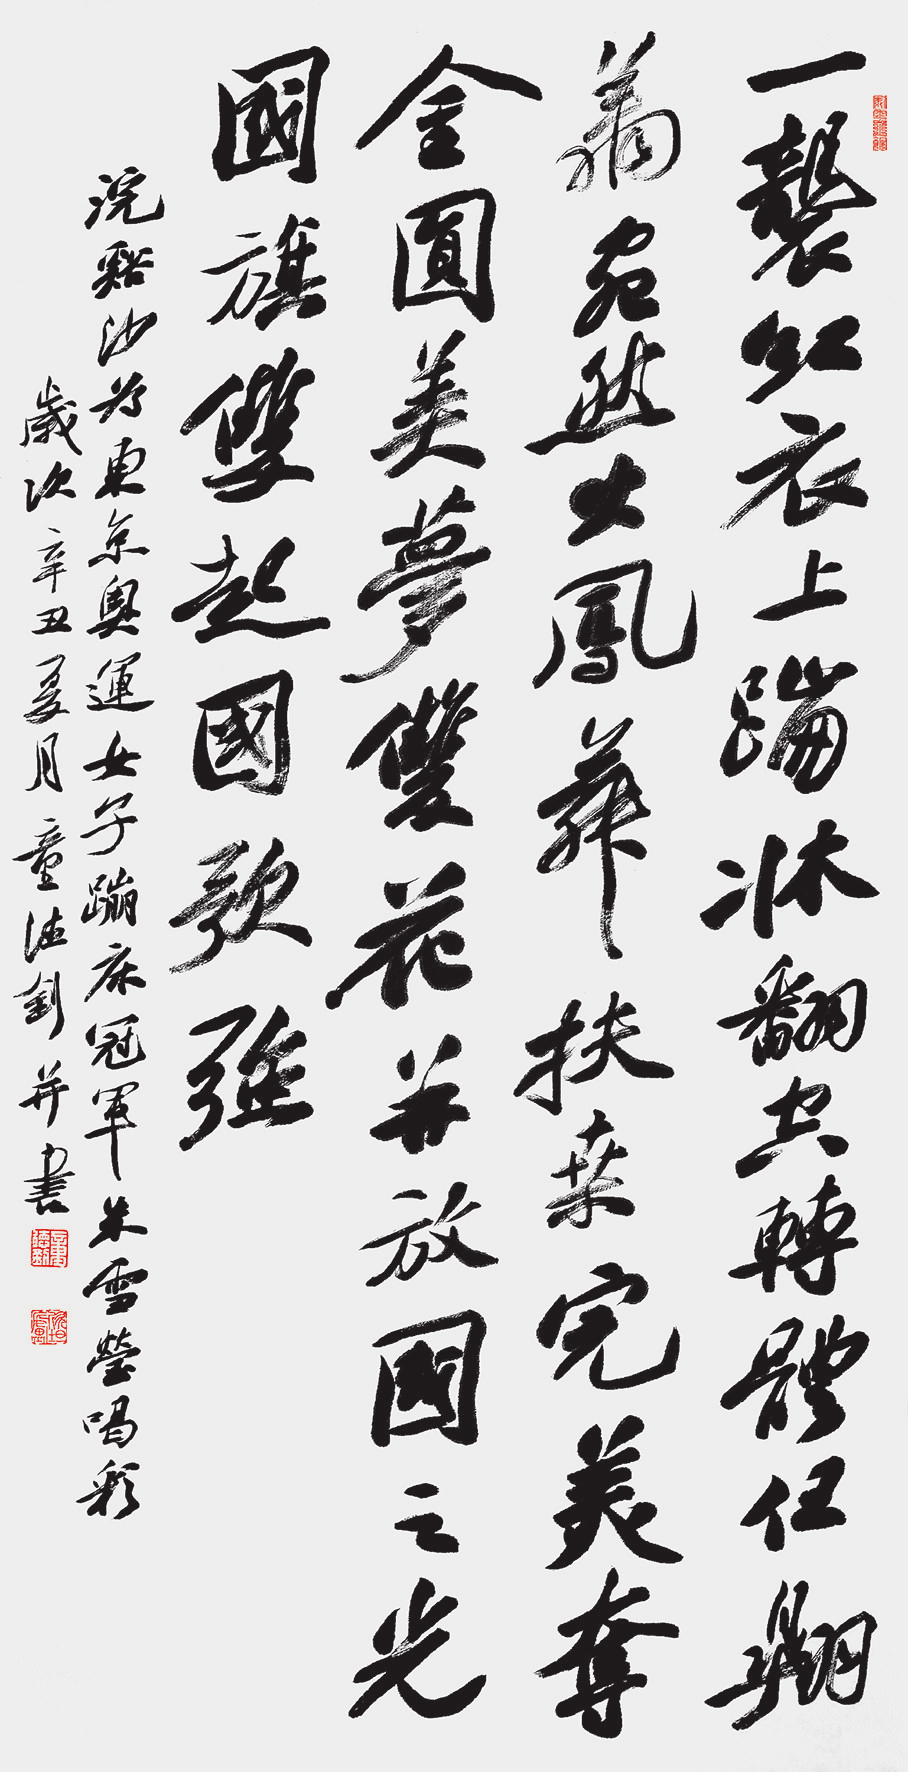 一襲紅衣上蹦牀翻空轉體任翱
翔宛然火鳳舞扶桑完美奪
金圓美夢雙花并放國之光
國旗雙起國歌強
浣谿沙为東京奧運女子蹦床冠軍朱雪瑩喝彩
歲次辛丑夏月童法剑并書